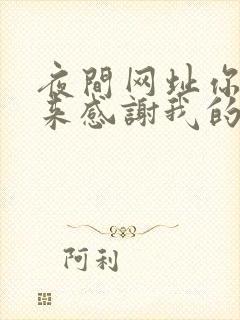 夜間网址你
来感謝我的
阿利